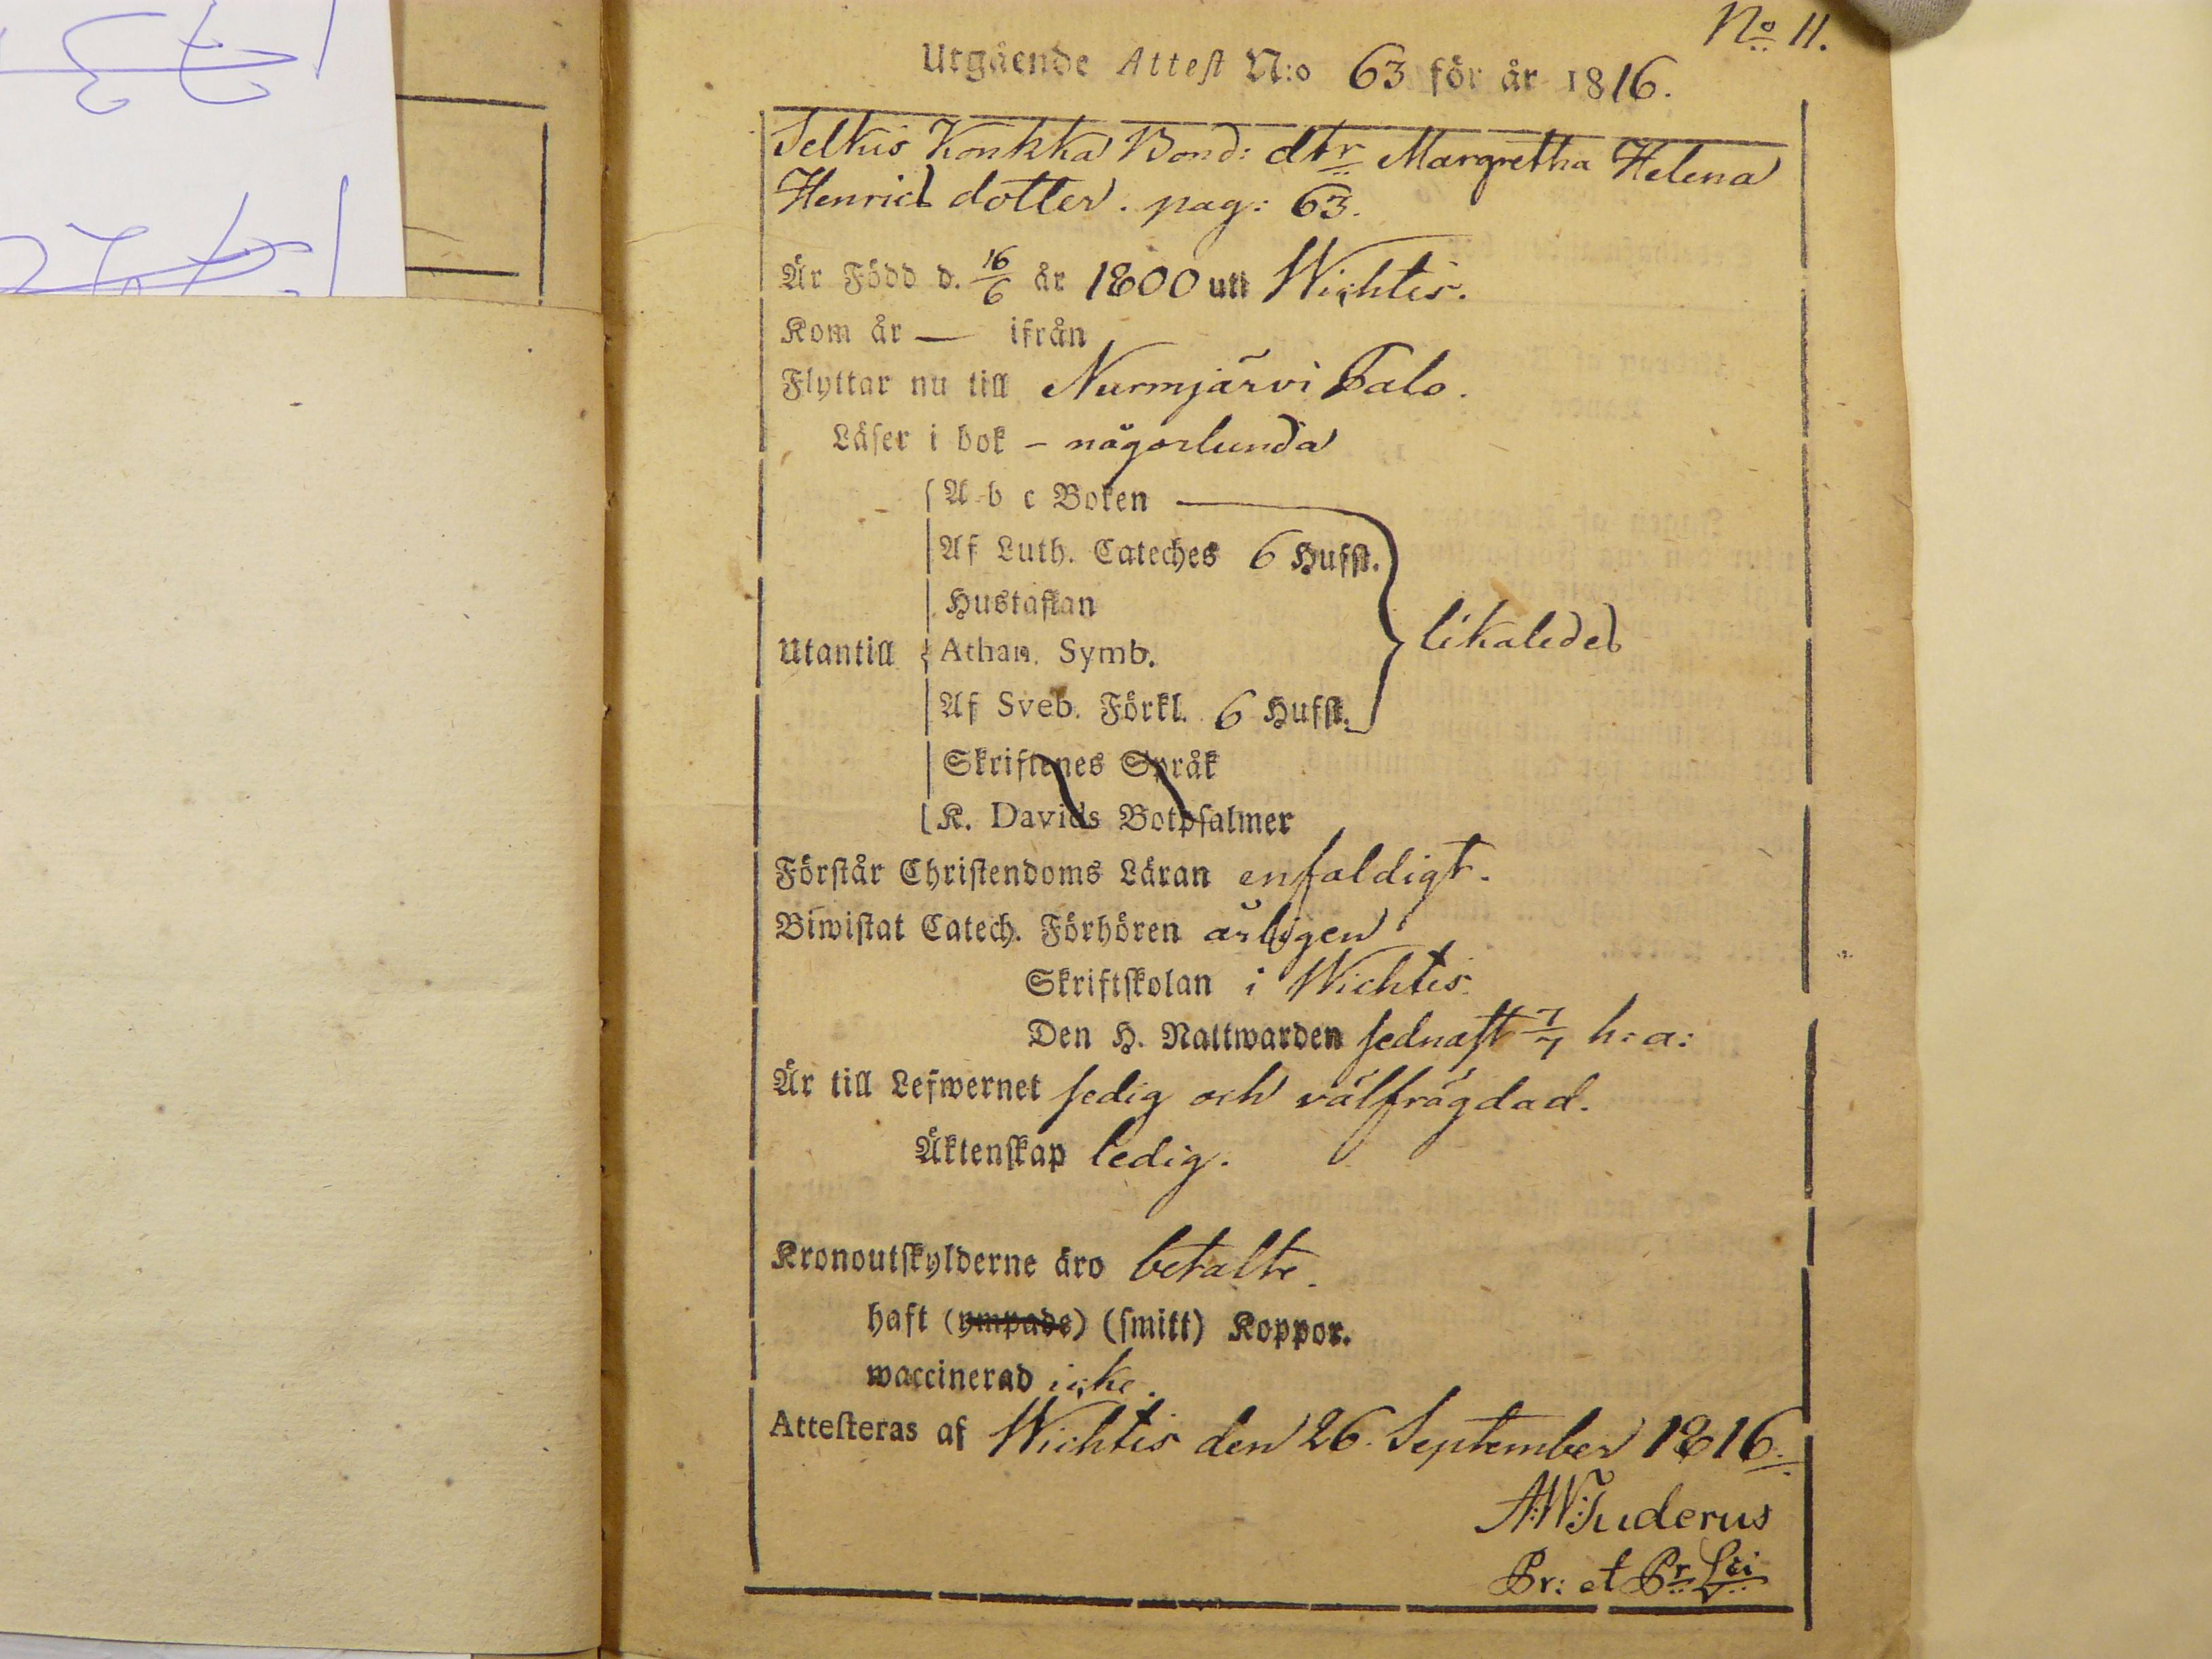 No 11.
Utgående Attest N:o 63 för år 1816.
Selkis Konkka Bond: dtr Margretha Helena
Henrics dotter. pag: 63.
Är Född d. 16/6 år 1800 uti Wichtis.
Kom år — ifrån
Flyttar nu till Nurmjärvi Palo.
Läser i bok - någorlunda
A b c Boken
Af Luth. Cateches 6 Hufst.
Hustaflan
Utantill Athan. Symb. likaledes
Af Sveb. Förkl. 6 Hufst.
Skriftenes Språk
K. Davids Botpsalmer
Förstår Christendoms Läran enfaldigt.
Biwistat Catech. Förhören årligen
Skriftskolan i Wichtis
Den H. Nattwarden sednast 7/7 h: a:
Är till Lefwernet sedig och välfrägdad.
Äktenskap ledig.
Kronoutskylderne äro betalte.
haft (ympade) (smitt) Koppor.
waccinerad icke.
Attesteras af Wichtis den 26. September 1816.
A:W:Tuderus
Pr: et Pr